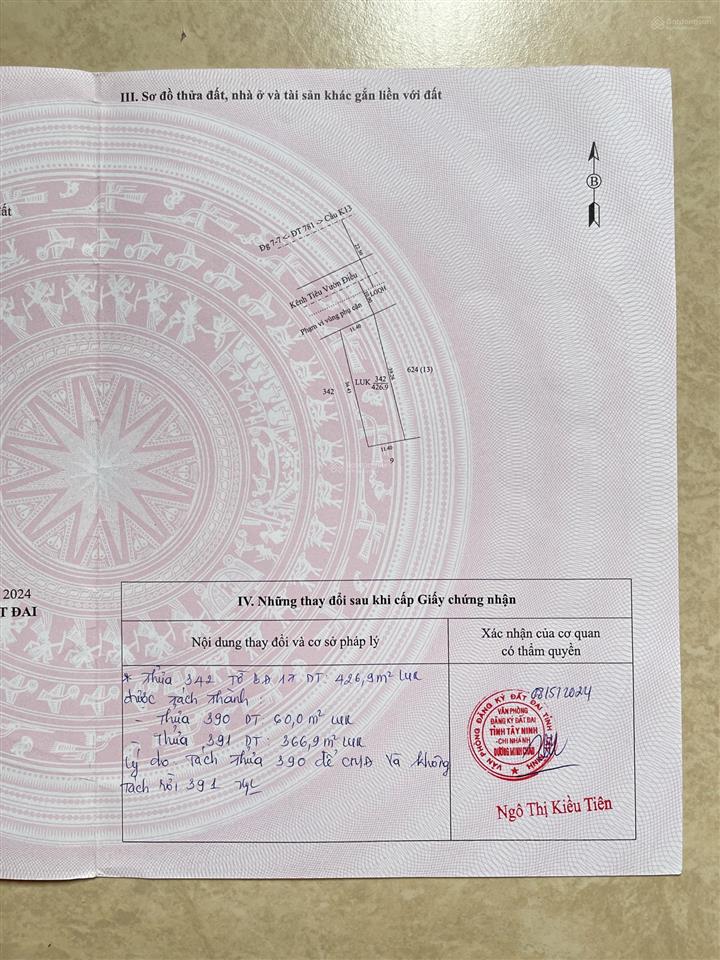 Batdongsan
III. Sơ đồ thửa đất, nhà ở và tài sản khác gắn liền với đất
ất
B
Đg 7-7 <- ĐT 781 -> Cầu K13
22.10
Kênh Tiêu Vườn Điều
LOQH
Phạm vi vùng phụ cận
11.40
342
LUK 342
426.9
624 (13)
11.40
9
2024
T ĐAI
IV. Những thay đổi sau khi cấp Giấy chứng nhận
Nội dung thay đổi và cơ sở pháp lý
Xác nhận của cơ quan
có thẩm quyền
* Thửa 342 Tờ BĐ 17 DT: 426,9m² LUK
được tách thành
- Thửa 390 DT 60,0m² LUK
- Thửa 391 DT: 366,9m² LUK
Lý do: Tách thửa 390 để CMĐ và không
tách rời 391
08/5/2024
VĂN PHÒNG ĐĂNG KÝ ĐẤT ĐAI TỈNH TÂY NINH
VĂN PHÒNG
ĐĂNG KÝ ĐẤT ĐAI
TỈNH TÂY NINH
-CHI NHÁNH
DƯƠNG MINH CHÂU
Ngô Thị Kiều Tiên